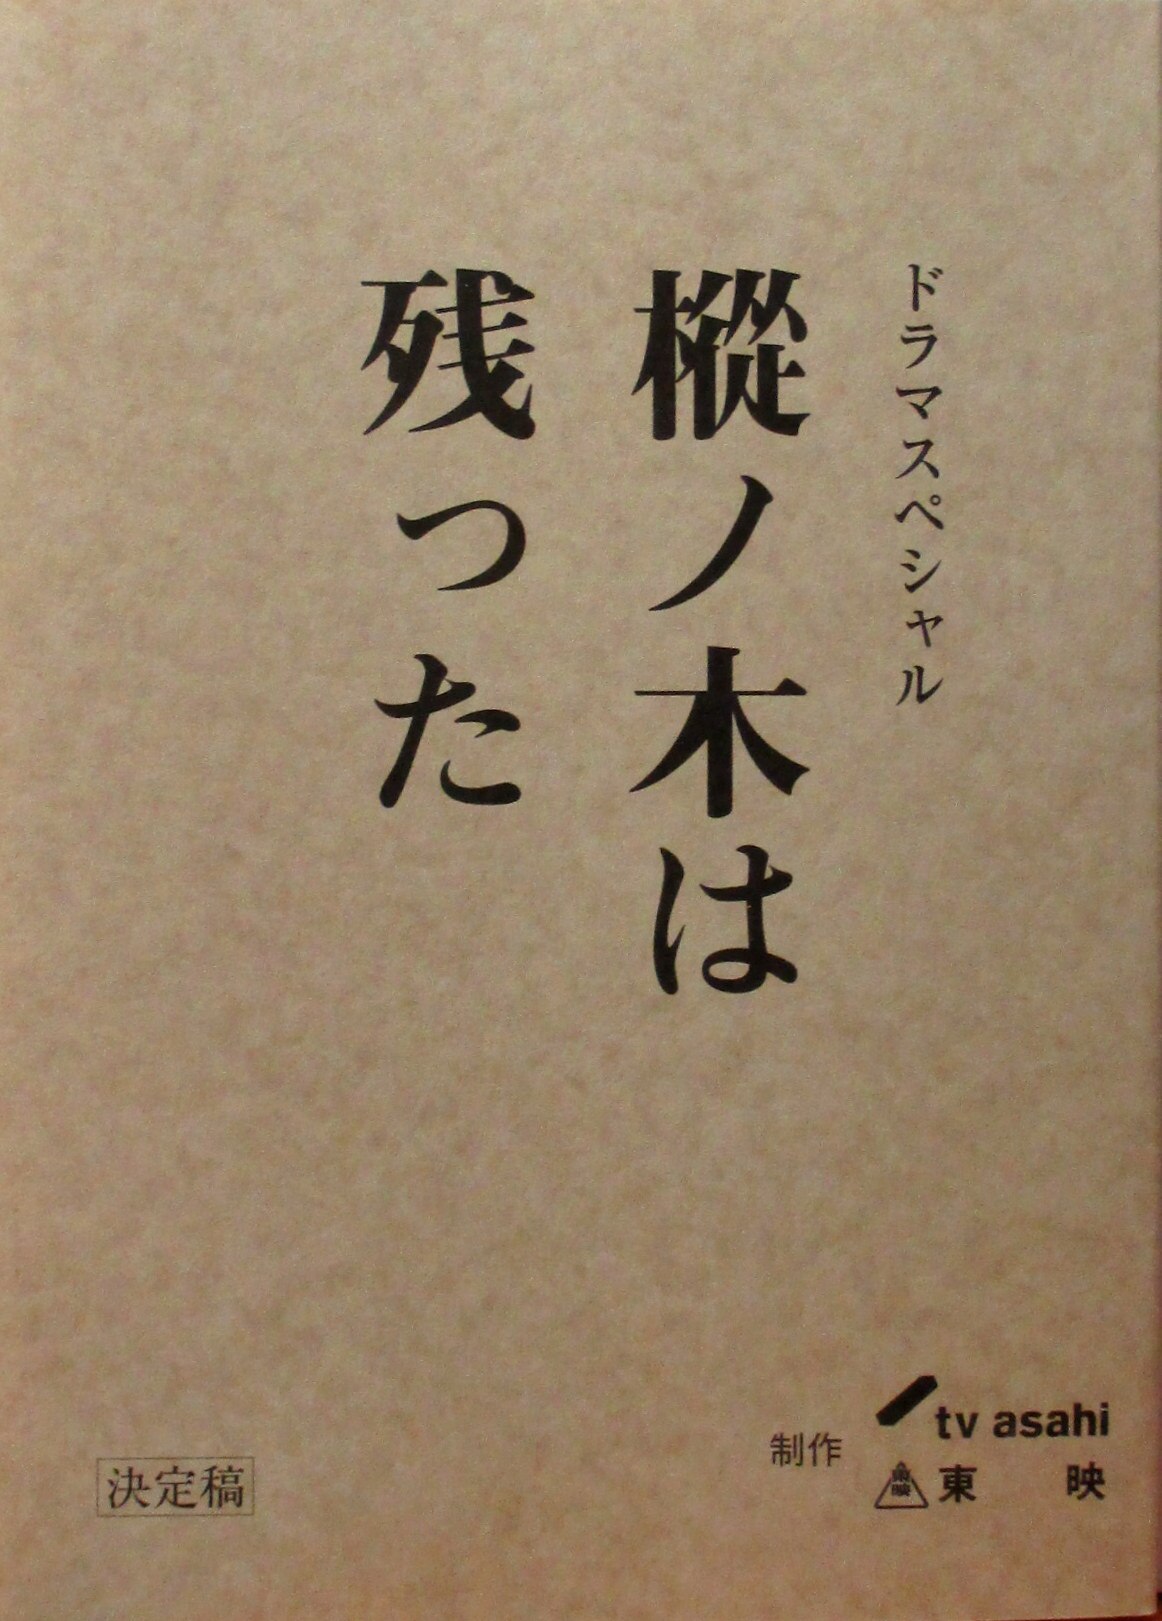 ドラマスペシャル
樅ノ木は
残った
制作
tv asahi
東映
東映
決定稿